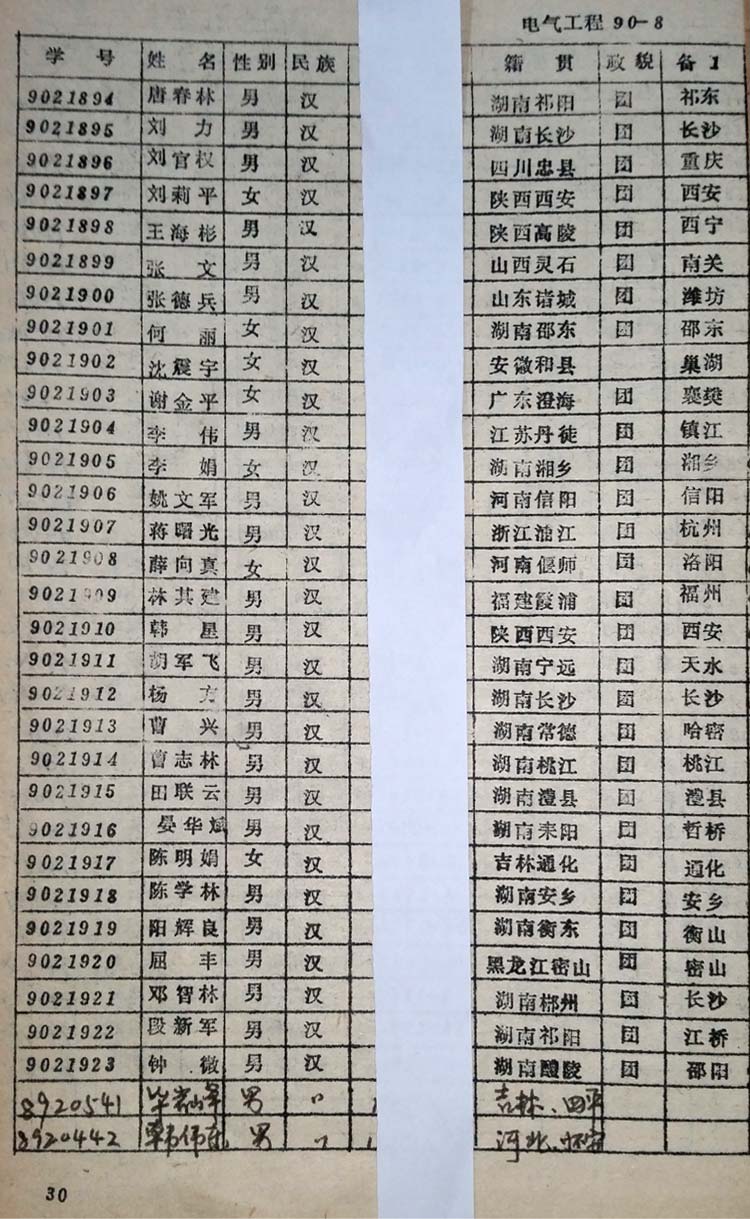 电气工程 90-8
学号 姓名 性别 民族 籍贯 政貌 备1
9021894 唐春林 男 汉 湖南祁阳 团 祁东
9021895 刘力 男 汉 湖南长沙 团 长沙
9021896 刘官权 男 汉 四川忠县 团 重庆
9021897 刘莉平 女 汉 陕西西安 团 西安
9021898 王海彬 男 汉 陕西高陵 团 西宁
9021899 张文 男 汉 山西灵石 团 南关
9021900 张德兵 男 汉 山东诸城 团 潍坊
9021901 何丽 女 汉 湖南邵东 团 邵东
9021902 沈震宇 女 汉 安徽和县 巢湖
9021903 谢金平 女 汉 广东澄海 团 襄樊
9021904 李伟 男 汉 江苏丹徒 团 镇江
9021905 李娟 女 汉 湖南湘乡 团 湘乡
9021906 姚文军 男 汉 河南信阳 团 信阳
9021907 蒋曙光 男 汉 浙江浦江 团 杭州
9021908 薛向真 女 汉 河南偃师 团 洛阳
9021909 林其建 男 汉 福建霞浦 团 福州
9021910 韩星 男 汉 陕西西安 团 西安
9021911 胡军飞 男 汉 湖南宁远 团 天水
9021912 杨方 男 汉 湖南长沙 团 长沙
9021913 曹兴 男 汉 湖南常德 团 哈密
9021914 曹志林 男 汉 湖南桃江 团 桃江
9021915 田联云 男 汉 湖南澧县 团 澧县
9021916 晏华斌 男 汉 湖南耒阳 团 哲桥
9021917 陈明娟 女 汉 吉林通化 团 通化
9021918 陈学林 男 汉 湖南安乡 团 安乡
9021919 阳辉良 男 汉 湖南衡东 团 衡山
9021920 屈丰 男 汉 黑龙江密山 团 密山
9021921 邓智林 男 汉 湖南郴州 团 长沙
9021922 段新军 男 汉 湖南祁阳 团 江桥
9021923 钟微 男 汉 湖南醴陵 团 邵阳
8920541 男 〃 吉林、四平
8920442 韩伟东 男 〃 河北、怀安
30